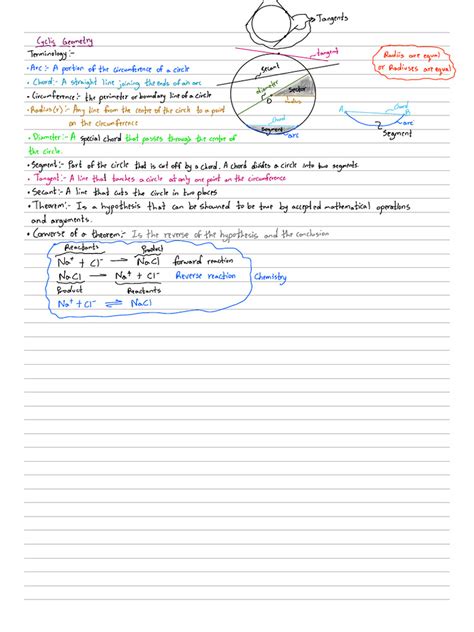 Tangents
Cyclic Geometry
Terminology:-
• Arc:- A portion of the circumference of a circle
• Chord:- A straight line joining the ends of an arc
• Circumference:- the perimeter or boundary line of a circle
• Radius(r):- Any line from the centre of the circle to a point
on the circumference
• Diameter:- A special chord that passes through the center of
the circle.
• Segment:- Part of the circle that is cut off by a chord. A chord divides a circle into two segments.
• Tangent:- A line that touches a circle at only one point on the circumference
• Secant:- A line that cuts the circle in two places
• Theorem:- Is a hypothesis that can be showned to be true by accepted mathematical operations
and arguments.
• Converse of a theorem:- Is the reverse of the hypothesis and the conclusion
tangent
secant
diameter
Sector
O
radius
chord
Segment
arc
Radiis are equal
or Radiuses are equal
A
Chord
B
arc
Segment
Reactants Product
Na⁺ + Cl⁻ → NaCl forward reaction
NaCl → Na⁺ + Cl⁻ Reverse reaction
Product Reactants
Na⁺ + Cl⁻ ⇌ NaCl
Chemistry